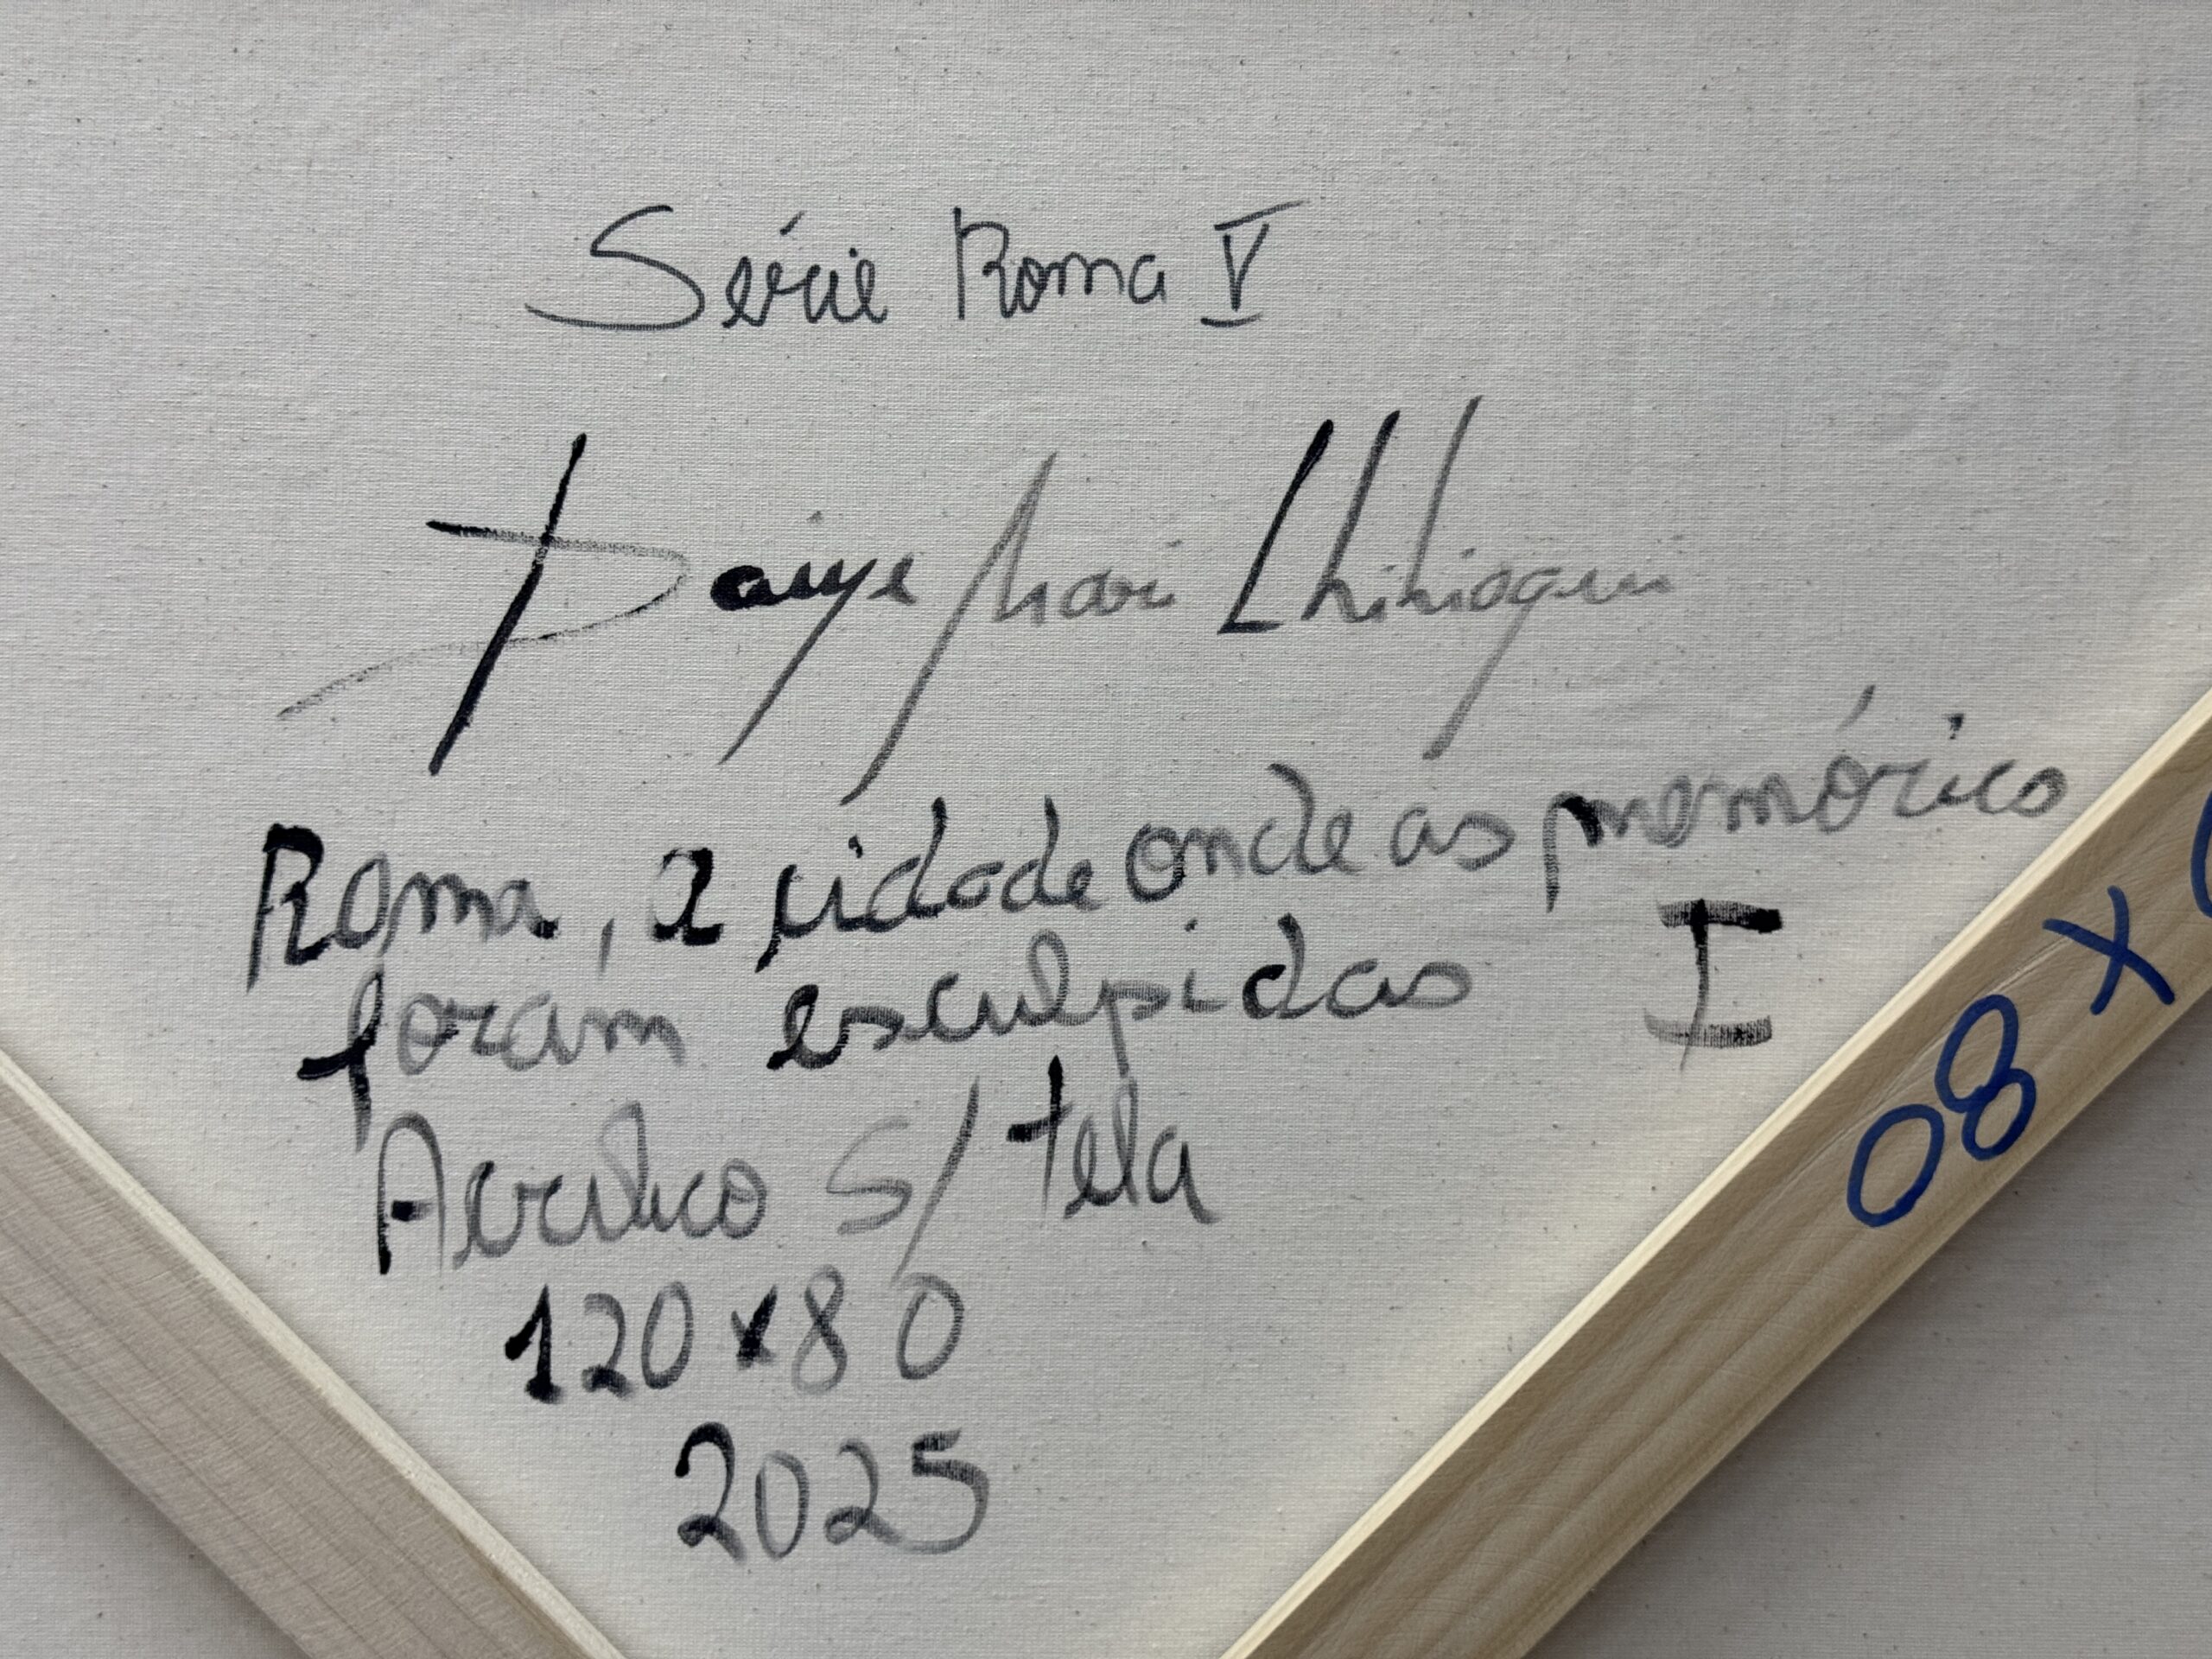 Série Roma V
Dayse
Roma, a cidade onde as memórias
foram esculpidas I
Acrílico s/ tela
120x80
2025
80 x